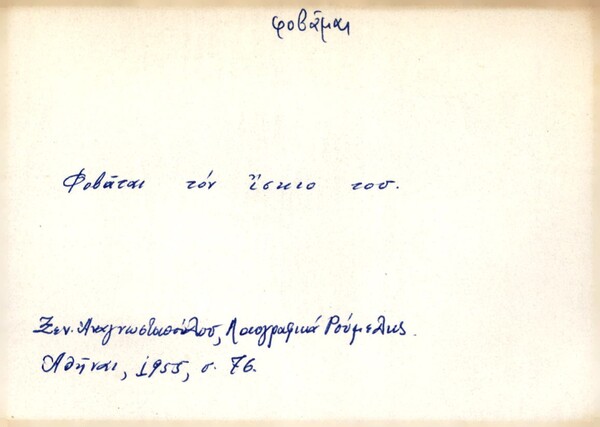 φοβᾶμαι
Φοβᾶται τόν ἴσκιο του.
Ξεν. Αναγνωστοπούλου, Λαογραφικά Ρούμελης.
Ἀθῆναι, 1955, σ. 76.